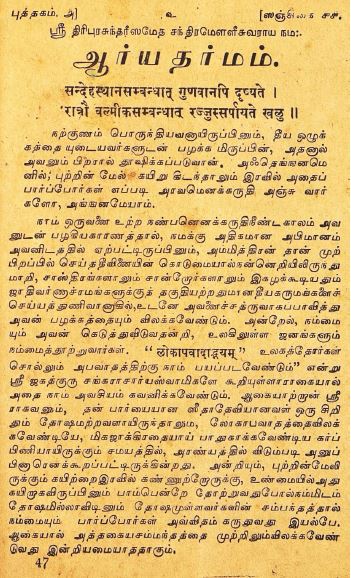 புத்தகம். அ] ௨ [ஸஞ்சிகை சச.
ஸ்ரீ திரிபுரசுந்தரீஸமேத சந்திரமௌளீசுவராய நம:
ஆர்யதர்மம்.
सन्देहस्थानसम्बन्धात् गुणवानपि दृष्यते ।
रात्रौ वल्मीकसम्बन्धात् रज्जुस्सर्पायते खलु ॥
நற்குணம் பொருந்தியவனாயிருப்பினும், தீய ஒழுக்
கத்தை யுடையவர்களுடன் பழக்க மிருப்பின், அதனால்
அவனும் பிறரால் தூஷிக்கப்படுவான். அஃதெங்ஙனமெ
னில்; புற்றின் மேல் கயிறு கிடந்தாலும் இரவில் அதைப்
பார்ப்போர்கள் எப்படி அரவமெனக்கருதி அஞ்சு வார்
களோ, அங்ஙனமேயாம்.
நாம் ஒருவனை உற்ற நண்பனெனக்கருதி நீண்டகாலம் அவ
னுடன் பழகியகாரணத்தால், நமக்கு அதிகமான அபிமானம்
அவனிடத்தில் ஏற்பட்டிருப்பினும், அம்மித்திரன் தான் முற்
பிறப்பில் செய்த தீவினையின் கொடுமையால் நன்னெறியிலிருந்து
மாறி, சாஸ்திரங்களாலும் சான்றோர்களாலும் இகழக்கூடியதும்
ஜாதிவர்ணாச்ரமங்களுக்குத் தகுதியற்றதுமான தீயகருமங்களைச்
செய்யத்துணிவானாகில், உடனே அவனைச்சத்ருவாகபாவித்து
அவன் பழக்கத்தையும் விலக்கவேண்டும். அன்றேல், நம்மை
யும் அவன் கெடுத்துவிடுவதன்றி, உலகிலுள்ள ஜனங்களும்
நம்மைத்தூற்றுவார்கள். "लोकापवादाद्भयम्" உலகத்தோர்கள்
சொல்லும் அபவாதத்திற்கு நாம் பயப்படவேண்டும்" என்று
ஸ்ரீ ஜகத்குரு சங்கராசார்யஸ்வாமிகளே கூறியுள்ளாராகையால்
அதை நாம் அவசியம் கவனிக்கவேண்டும். ஆகையாற்றான் ஸ்ரீ
ராகவனும், தன் பார்யையான ஸீதாதேவியானவள் ஒரு சிறி
தும் தோஷமற்றவளாயிருந்தாலும், லோகாபவாதத்தைவிலக்
கவேண்டியே, மிகஜாக்கிரதையாய் பாதுகாக்கவேண்டிய கர்ப்
பிணியாயிருக்கும் சமயத்தில், அரண்யத்தில் விடும்படி அனுப்
பினாரெனக்கூறப்பட்டிருக்கின்றது. அன்றியும், புற்றின்மேலி
ருக்கும் கயிற்றைஇரவில் கண்ணுற்றோருக்கு, உண்மையில்அது
கயிறாகவிருப்பினும் பாம்பென்றே தோற்றுவதுபோல்நம்மிடம்
தோஷமில்லாவிடினும் தோஷமுள்ளவர்களின் சம்பந்தத்தால்
நம்மையும் பார்ப்போர்கள் அவ்விதம் கருதுவது இயல்பே.
ஆகையால் அத்தகையசம்மந்தத்தை முற்றிலும்விலக்கவேண்
டுவது இன்றியமையாததாகும்,
47